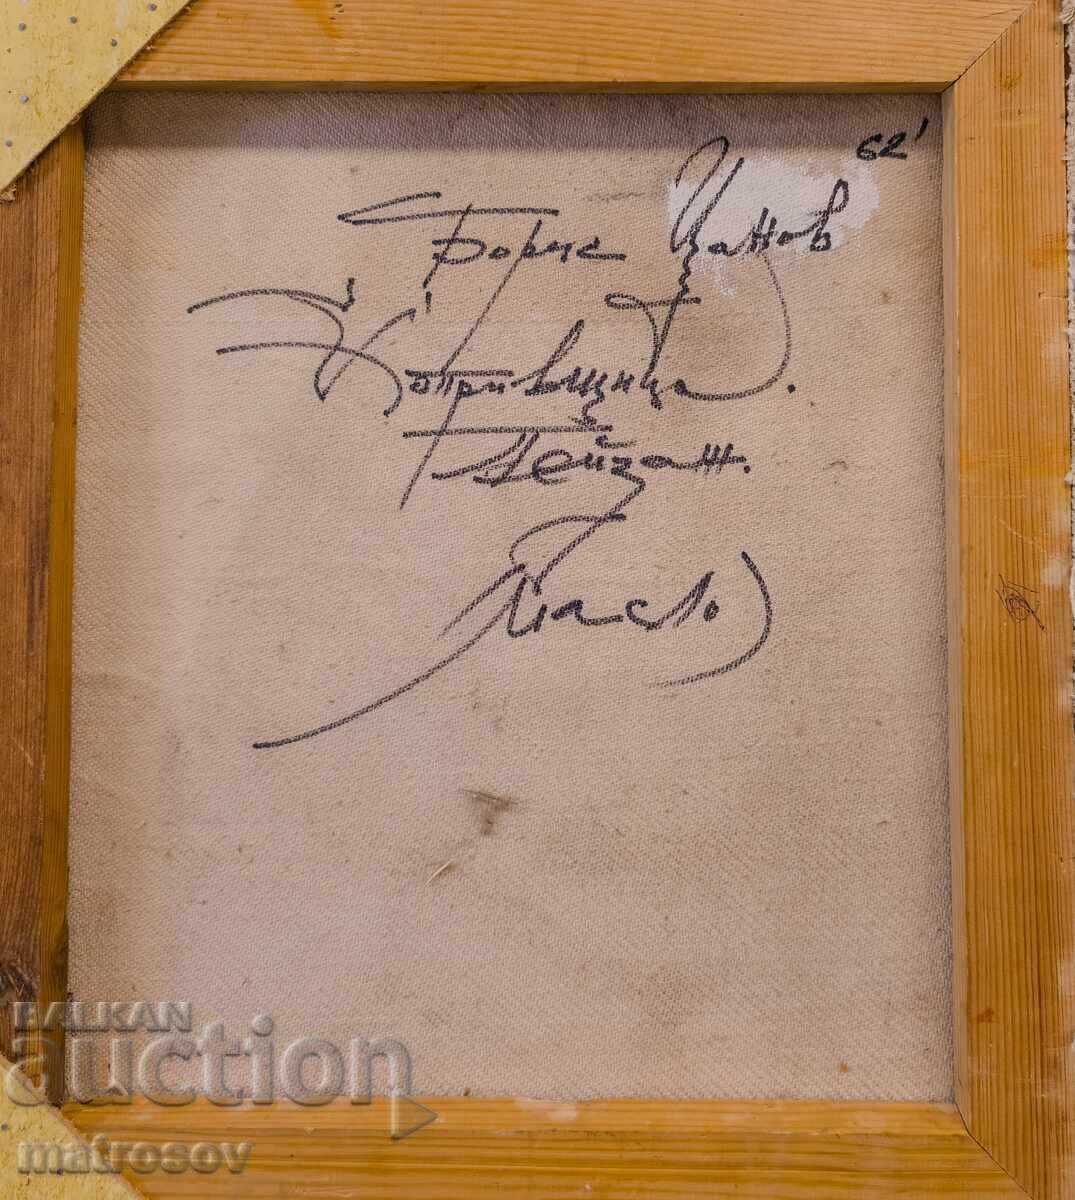 62'
Борис Цанов
Копривщица.
Пейзаж.
Масло
BALKAN
auction
matrosov